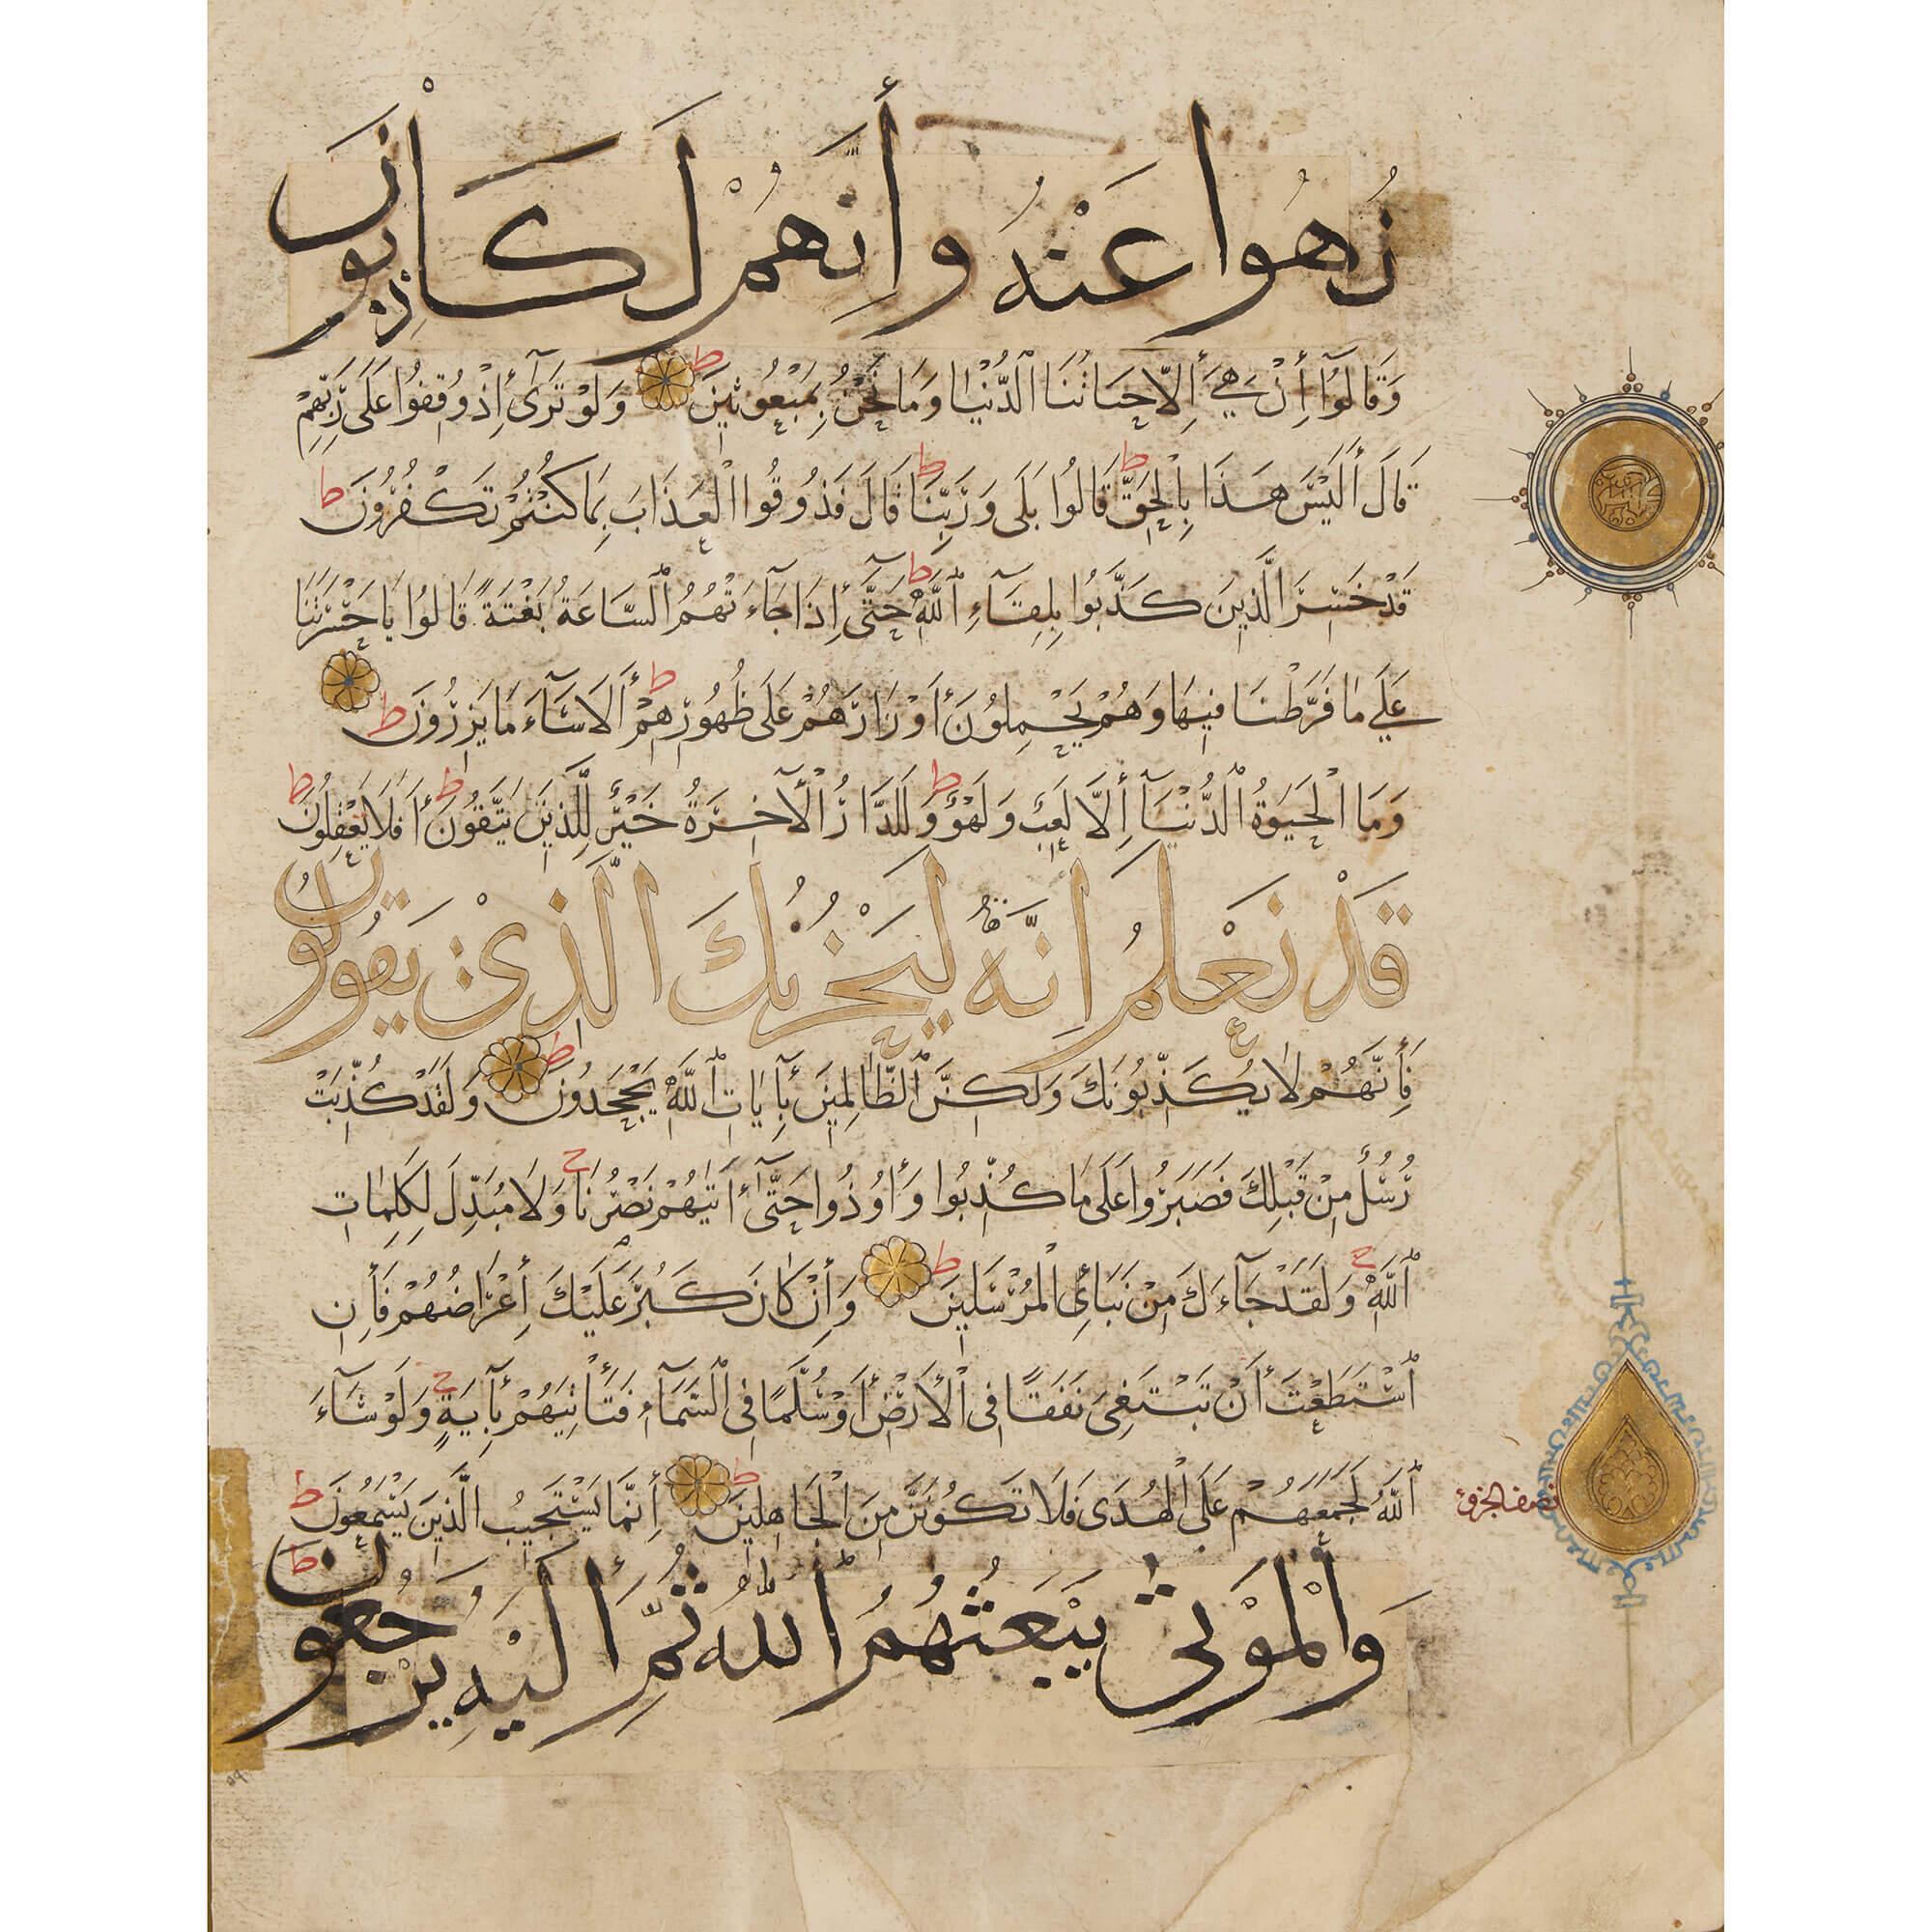 نُهُوا عَنْهُ وَإِنَّهُمْ لَكَاذِبُونَ
وَقَالُوٓا إِنْ هِيَ إِلَّا حَيَاتُنَا الدُّنْيَا وَمَا نَحْنُ بِمَبْعُوثِينَ ط وَلَوْ تَرَىٰٓ إِذْ وُقِفُوا عَلَىٰ رَبِّهِمْ
قَالَ أَلَيْسَ هَذَا بِالْحَقِّ ط قَالُوا بَلَى وَرَبِّنَا ط قَالَ فَذُوقُوا الْعَذَابَ بِمَا كُنْتُمْ تَكْفُرُونَ ط
قَدْ خَسِرَ الَّذِينَ كَذَّبُوا بِلِقَآءِ اللَّهِ ط حَتَّىٰٓ إِذَا جَآءَتْهُمُ السَّاعَةُ بَغْتَةً قَالُوا يَا حَسْرَتَنَا
عَلَىٰ مَا فَرَّطْنَا فِيهَا وَهُمْ يَحْمِلُونَ أَوْزَارَهُمْ عَلَى ظُهُورِهِمْ ط أَلَا سَآءَ مَا يَزِرُونَ ط
وَمَا الْحَيَوٰةُ الدُّنْيَآ إِلَّا لَعِبٌ وَلَهْوٌ ط وَلَلدَّارُ الْآخِرَةُ خَيْرٌ لِلَّذِينَ يَتَّقُونَ ط أَفَلَا يَعْقِلُونَ ط
قَدْ نَعْلَمُ إِنَّهُ لَيَحْزُنُكَ الَّذِيْ يَقُولُونَ
فَإِنَّهُمْ لَا يُكَذِّبُونَكَ وَلَكِنَّ الظَّالِمِينَ بِآيَاتِ اللَّهِ يَجْحَدُونَ ط وَلَقَدْ كُذِّبَتْ
رُسُلٌ مِنْ قَبْلِكَ فَصَبَرُوا عَلَى مَا كُذِّبُوا وَأُوذُوا حَتَّىٰٓ أَتَىٰهُمْ نَصْرُنَا ج وَلَا مُبَدِّلَ لِكَلِمَاتِ
اللَّهِ ج وَلَقَدْ جَآءَكَ مِنْ نَبَإِى الْمُرْسَلِينَ ط وَإِنْ كَانَ كَبُرَ عَلَيْكَ إِعْرَاضُهُمْ فَإِنِ
اسْتَطَعْتَ أَنْ تَبْتَغِيَ نَفَقًا فِى الْأَرْضِ أَوْ سُلَّمًا فِى السَّمَآءِ فَتَأْتِيَهُمْ بِآيَةٍ ج وَلَوْ شَآءَ
اللَّهُ لَجَمَعَهُمْ عَلَى الْهُدَى فَلَا تَكُونَنَّ مِنَ الْجَاهِلِينَ ط إِنَّمَا يَسْتَجِيبُ الَّذِينَ يَسْمَعُونَ ط
نصف الجزء
وَالْمَوْتَىٰ يَبْعَثُهُمُ اللَّهُ ثُمَّ إِلَيْهِ يُرْجَعُونَ ط